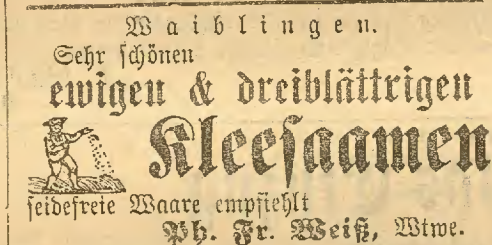 Waiblingen.
Sehr schönen
ewigen & dreiblättrigen
Kleesaamen
seidefreie Waare empfiehlt
Ph. Fr. Weiß, Wtwe.